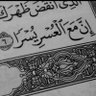 الَّذِى أَنقَضَ ظَهْرَكَ
إِنَّ مَعَ الْعُسْرِ يُسْرًا ٦